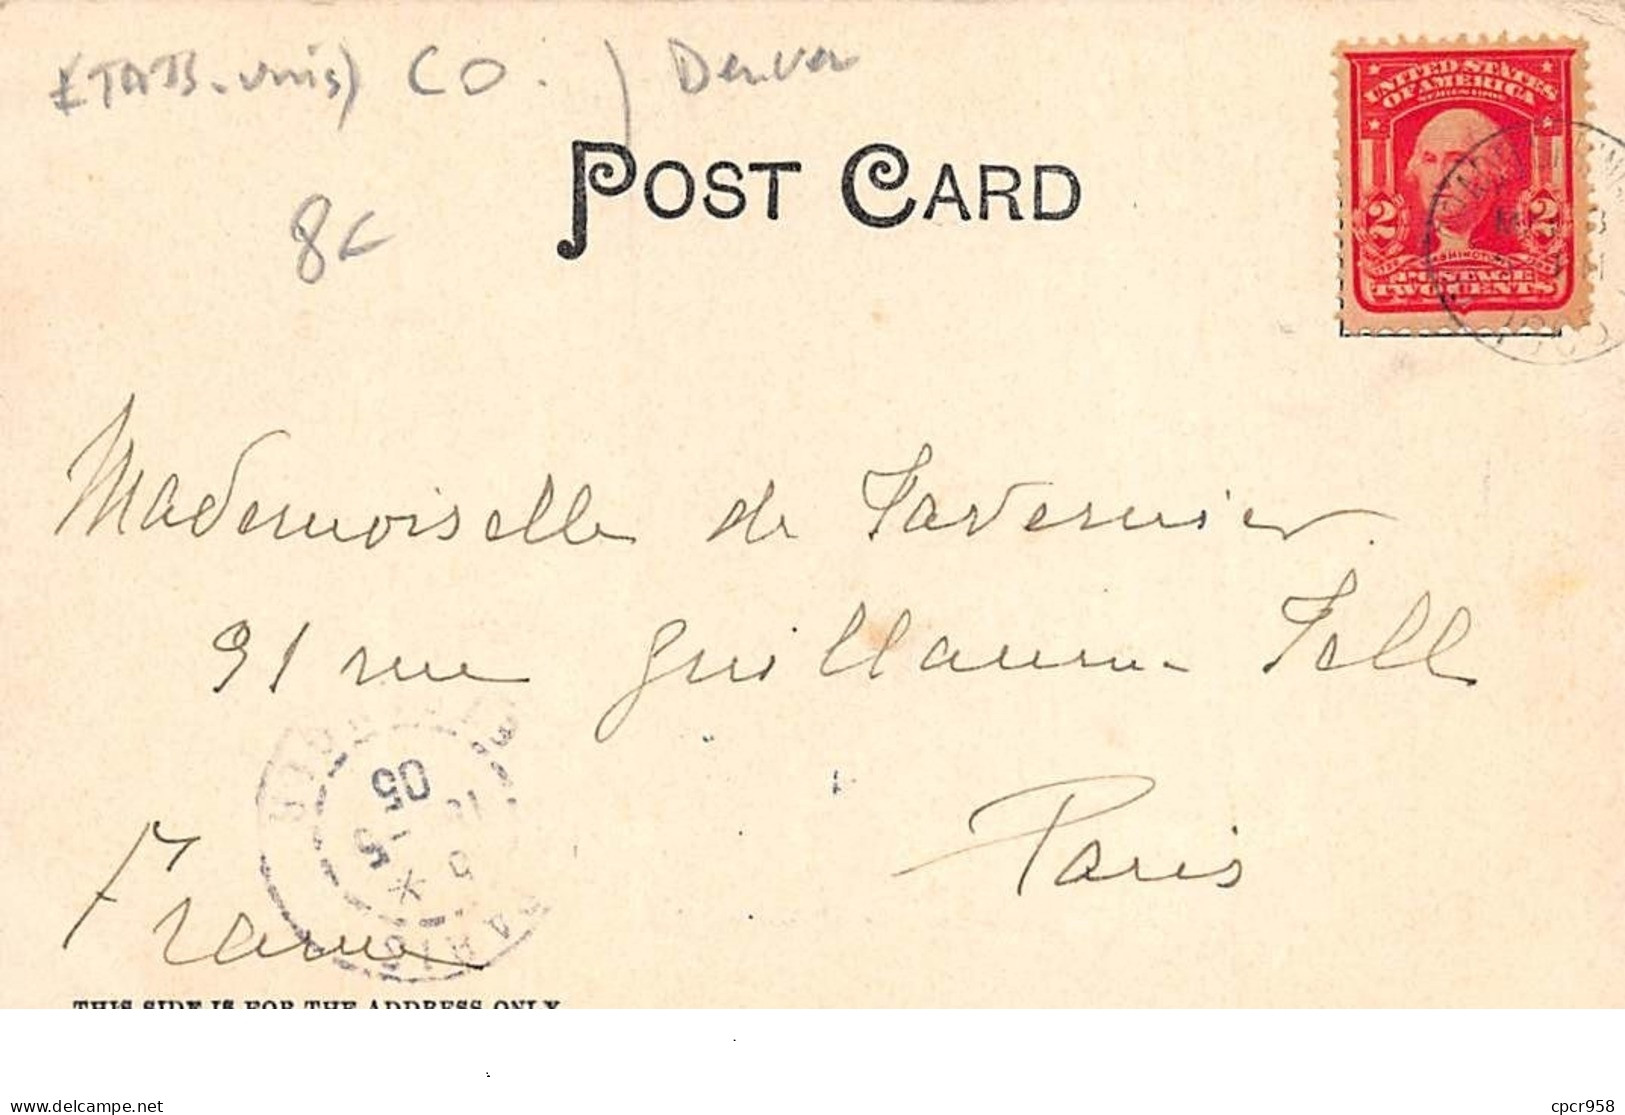 ETATS-unis) CO. ) Denver
POST CARD
8€
UNITED STATES
OF AMERICA
SERIES 1902
2 2
WASHINGTON
POSTAGE
TWO CENTS
1905
Mademoiselle de Tavernier.
91 rue Guillaume Tell
Paris
France
05
PARIS
THIS SIDE IS FOR THE ADDRESS ONLY
delcampe.net
cpcr958